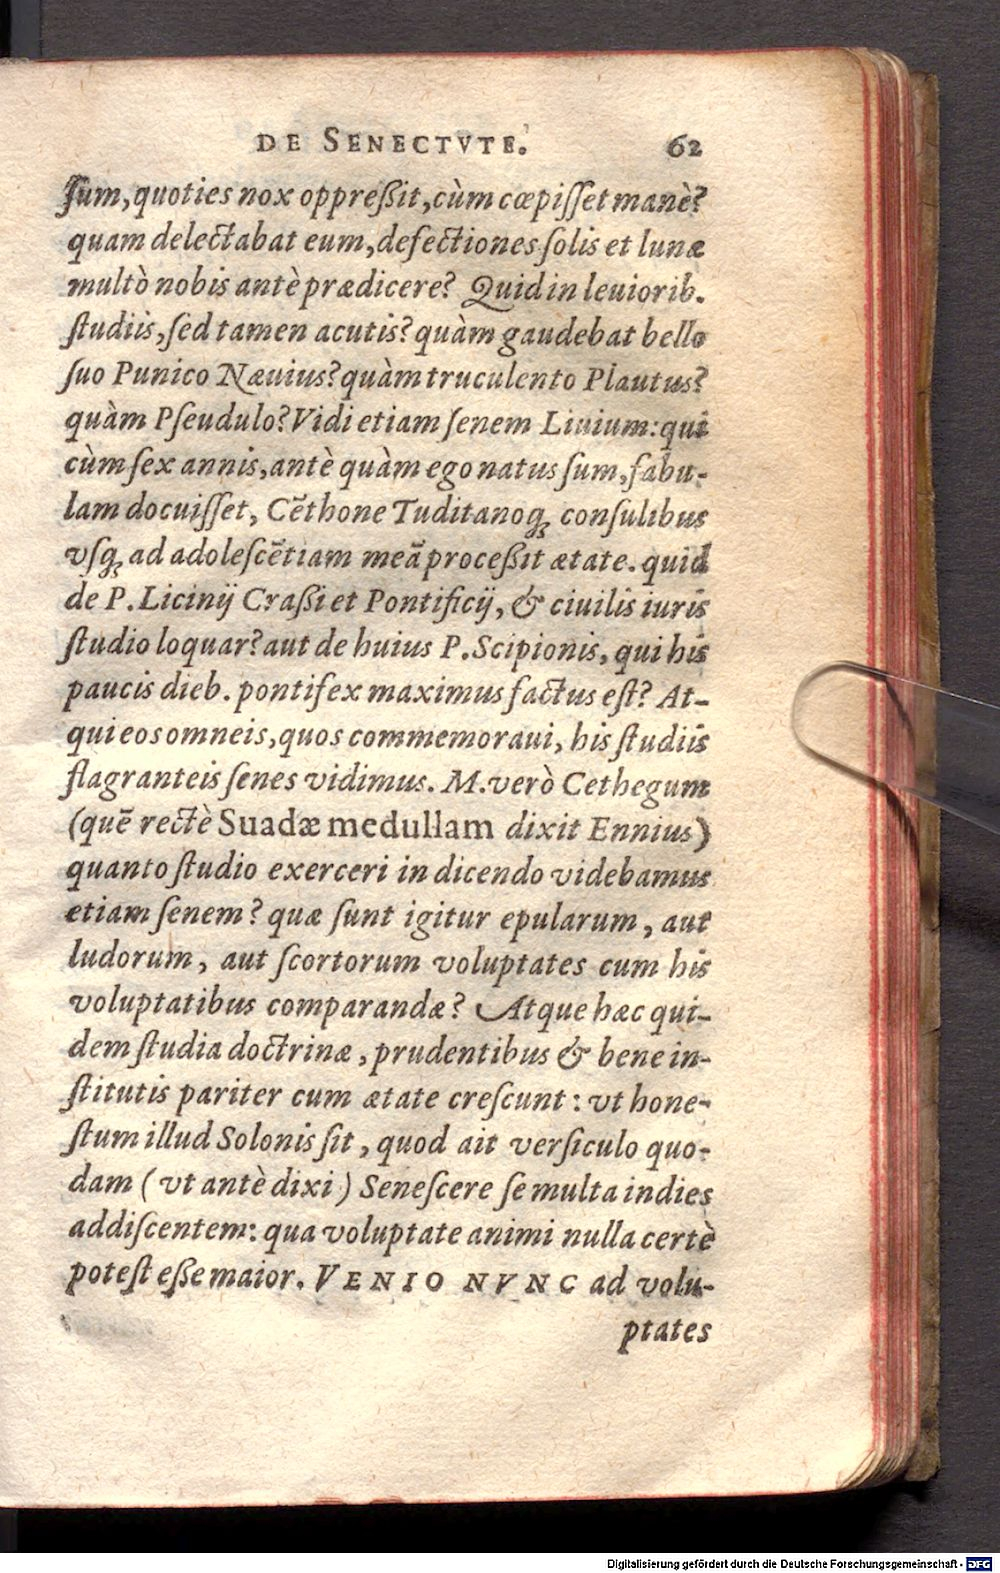 DE SENECTVTE. 62
ſum, quoties nox oppreßit, cùm cœpiſſet manè?
quam delectabat eum, defectiones ſolis et lunæ
multò nobis antè prædicere? Quid in leuiorib.
ſtudiis, ſed tamen acutis? quàm gaudebat bello
ſuo Punico Næuius? quàm truculento Plautus?
quàm Pſeudulo? Vidi etiam ſenem Liuium: qui
cùm ſex annis, antè quàm ego natus ſum, fabu-
lam docuiſſet, Cēthone Tuditanoq; conſulibus
vſq; ad adoleſcētiam meā proceßit ætate. quid
de P. Licinij Craßi et Pontificij, & ciuilis iuris
ſtudio loquar? aut de huius P. Scipionis, qui his
paucis dieb. pontifex maximus factus eſt? At-
qui eos omneis, quos commemoraui, his ſtudiis
flagranteis ſenes vidimus. M. verò Cethegum
(quē rectè Suadæ medullam dixit Ennius)
quanto ſtudio exerceri in dicendo videbamus
etiam ſenem? quæ ſunt igitur epularum, aut
ludorum, aut ſcortorum voluptates cum his
voluptatibus comparandæ? Atque hæc qui-
dem ſtudia doctrinæ, prudentibus & bene in-
ſtitutis pariter cum ætate creſcunt: vt hone-
ſtum illud Solonis ſit, quod ait verſiculo quo-
dam (vt antè dixi) Seneſcere ſe multa indies
addiſcentem: qua voluptate animi nulla certè
poteſt eße maior. VENIO NVNC ad volu-
ptates
Digitalisierung gefördert durch die Deutsche Forschungsgemeinschaft - DFG